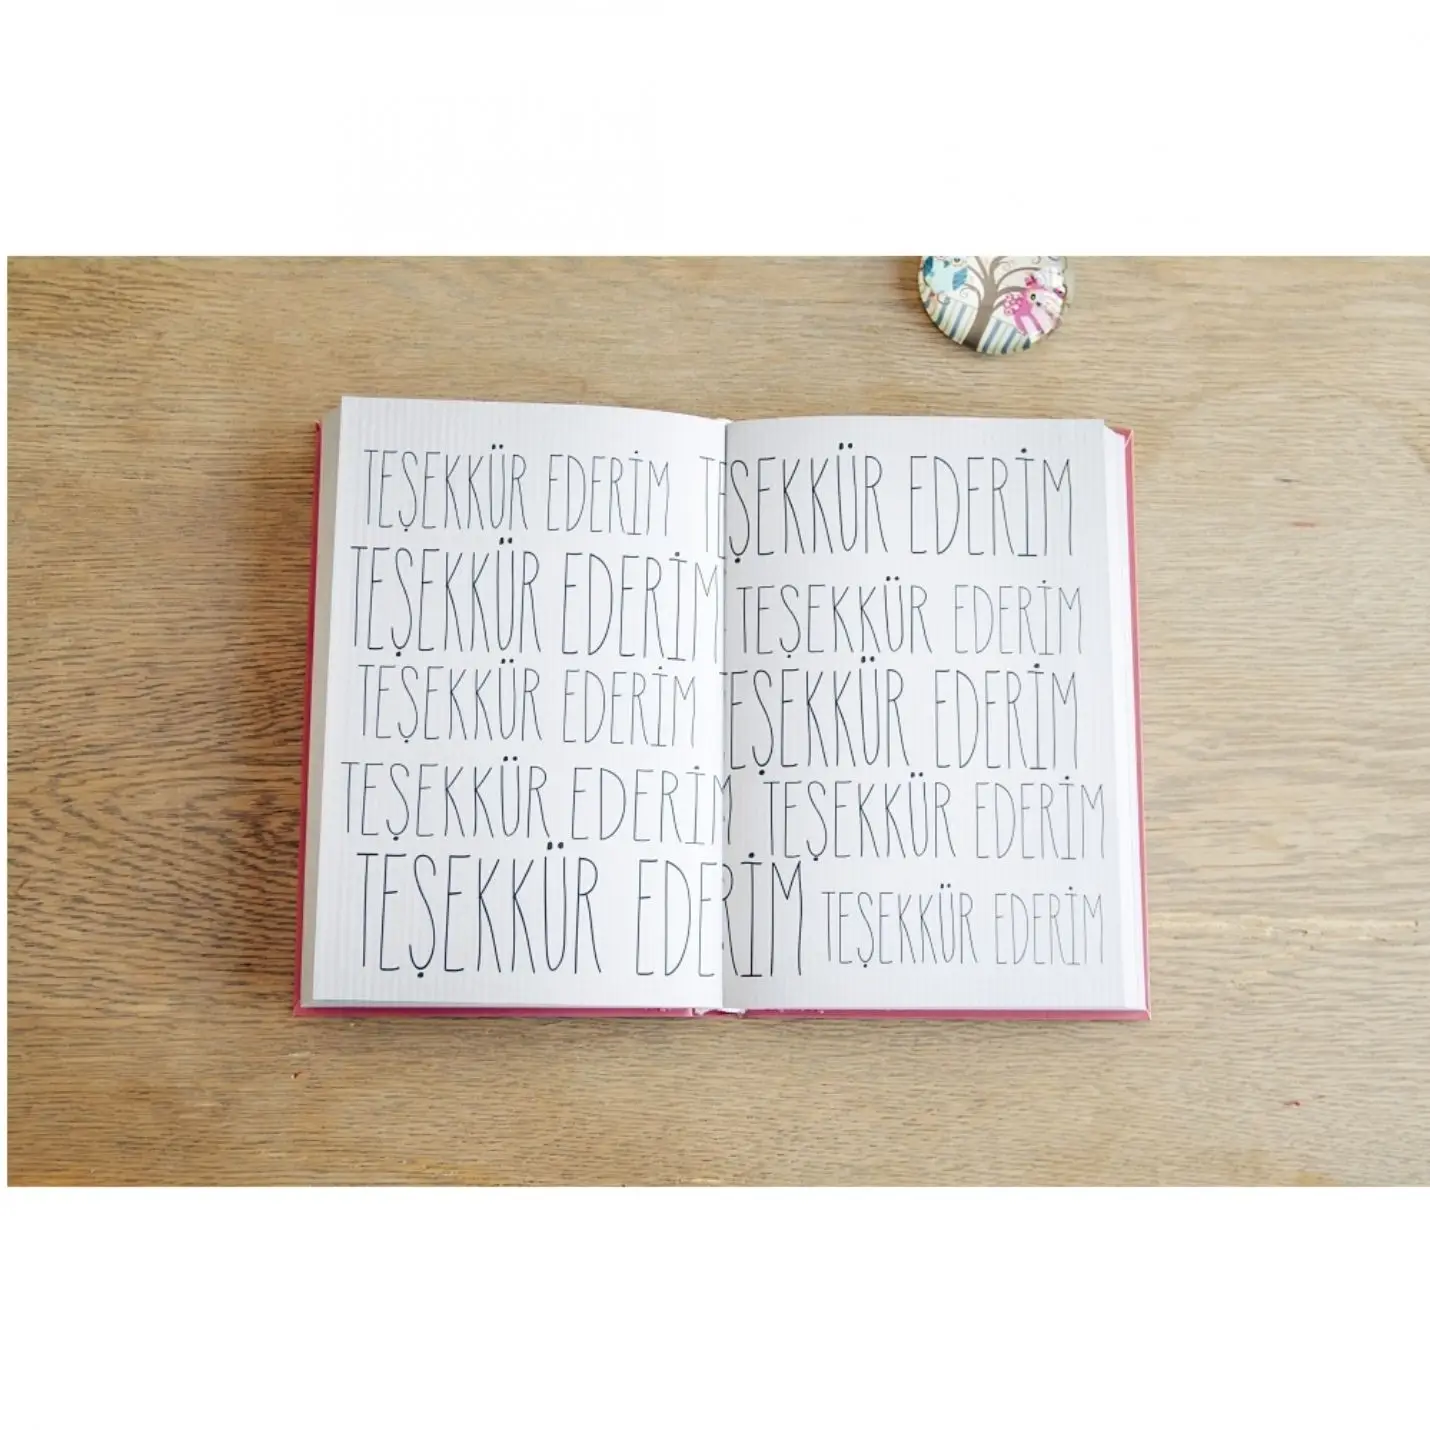 TEŞEKKÜR EDERİM TEŞEKKÜR EDERİM
TEŞEKKÜR EDERİM TEŞEKKÜR EDERİM
TEŞEKKÜR EDERİM TEŞEKKÜR EDERİM
TEŞEKKÜR EDERİM TEŞEKKÜR EDERİM
TEŞEKKÜR EDERİM TEŞEKKÜR EDERİM